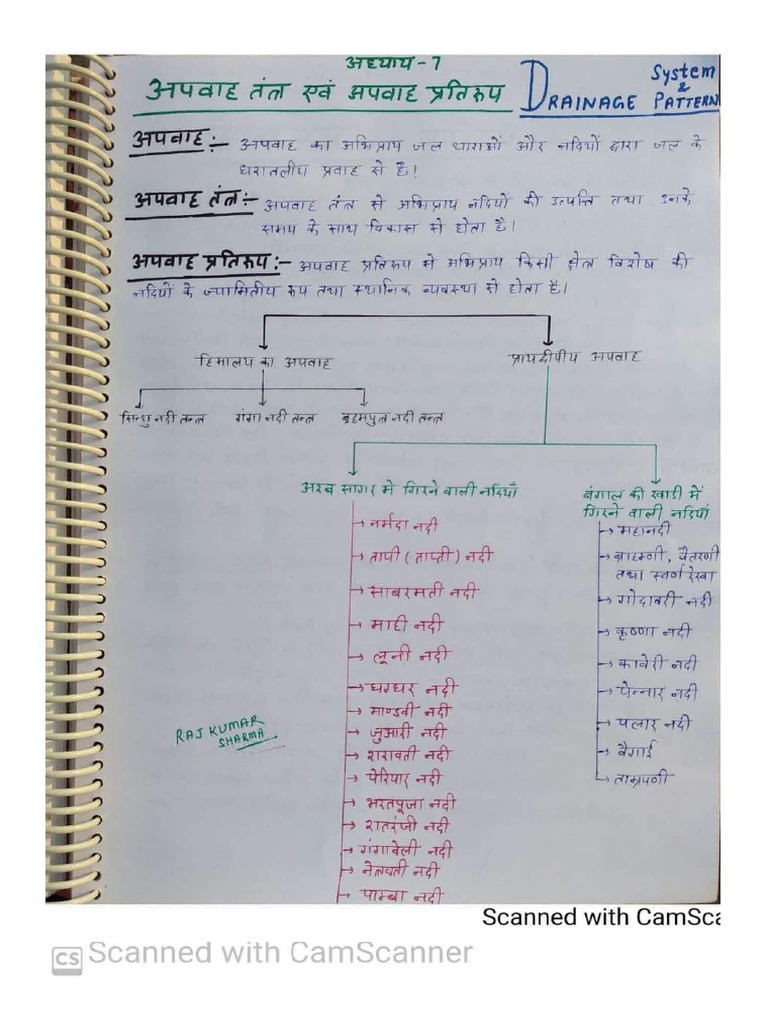 अध्याय - 7
अपवाह तंत्र एवं अपवाह प्रतिरूप
DRAINAGE System & PATTERN
अपवाह :- अपवाह का अभिप्राय जल धाराओं और नदियों द्वारा जल के
धरातलीय प्रवाह से है!
अपवाह तंत्र :- अपवाह तंत्र से अभिप्राय नदियों की उत्पत्ति तथा उनके
समय के साथ विकास से होता है।
अपवाह प्रतिरूप :- अपवाह प्रतिरूप से अभिप्राय किसी क्षेत्र विशेष की
नदियों के ज्यामितीय रूप तथा स्थानिक व्यवस्था से होता है।
हिमालय का अपवाह
प्रायद्वीपीय अपवाह
सिन्धु नदी तन्त्र
गंगा नदी तन्त्र
ब्रह्मपुत्र नदी तन्त्र
अरब सागर मे गिरने वाली नदियाँ
नर्मदा नदी
तापी (ताप्ती) नदी
साबरमती नदी
माही नदी
लूनी नदी
घग्घर नदी
माण्डवी नदी
जुआरी नदी
शरावती नदी
पेरियार नदी
भरतपूजा नदी
शतरंजी नदी
गंगावेली नदी
नेत्रवती नदी
पाम्बा नदी
बंगाल की खाडी में
गिरने वाली नदियां
महानदी
ब्राह्मणी, वैतरणी
तथा स्वर्ण रेखा
गोदावरी नदी
कृष्णा नदी
कावेरी नदी
पेन्नार नदी
पलार नदी
वैगाई
ताम्रपर्णी
RAJ KUMAR
SHARMA
Scanned with CamSca
CS Scanned with CamScanner